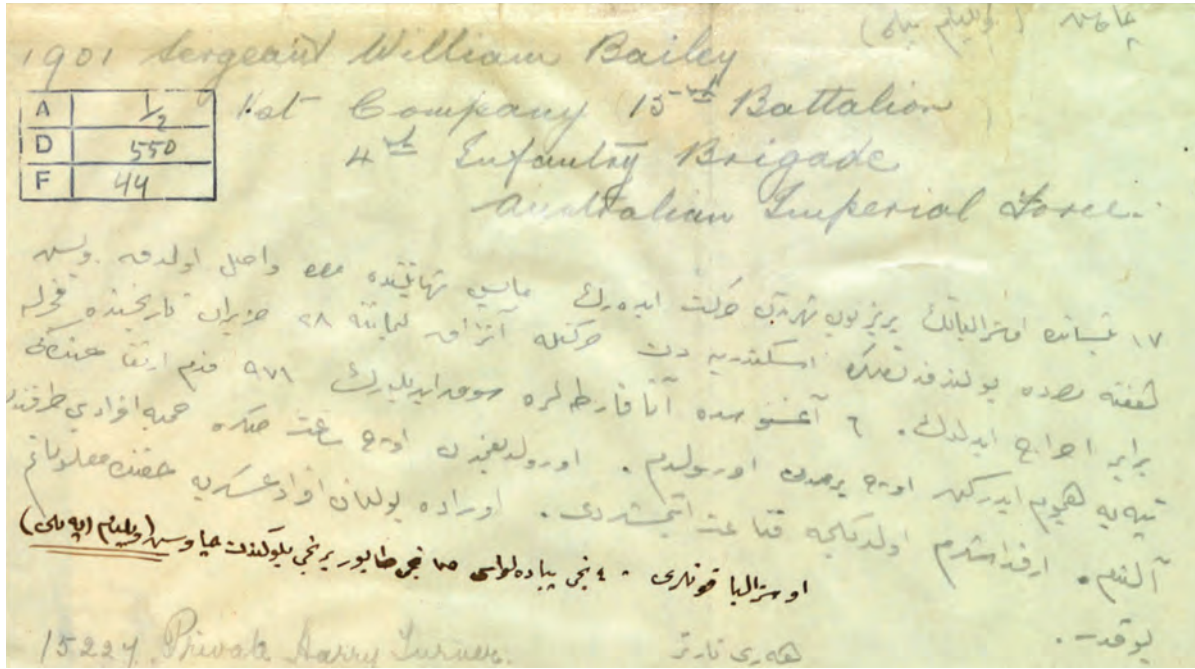 چاوش (ویلیام بیلی)
1901 Sergeant William Bailey
A 1/2
D 550
F 44
1st Company 15th Battalion
4th Infantry Brigade
Australian Imperial Force.
١٧ نیسانده اوسترالیانك بریزبون شهرندن حركت ایده‌رك مایس نهایتنده مصره واصل اولدق.
هفته مصرده بولندقدنصكره اسكندریه دن حركتله آنزاق لیماننه ٢٨ حزیران تاریخنده فجرله
برابر اخراج ایدلدك. ٦ آغستوسده آنافارطه لره سوق ایدیله‌رك ٩٧١ قدم ارتفاعنده‌كی
تپه یه هجوم ایدركن اوچ یرمدن اورولدم. اورولدیغمدن اوچ ساعت صكره افرادی طرفندن
آلندم. ارقداشلرم اولدقجه ایتمشلردی. اوراده بولنان افراد عسكریه حقنده معلوماتم
یوقدر.
اوسترالیا قوتلری ٤ نجی پیاده لواسی ١٥ نجی طابور برنجی بلوكندن چاوش (ویلیام بیلی)
15224 Private Harry Turner.
هه‌ری تارنر